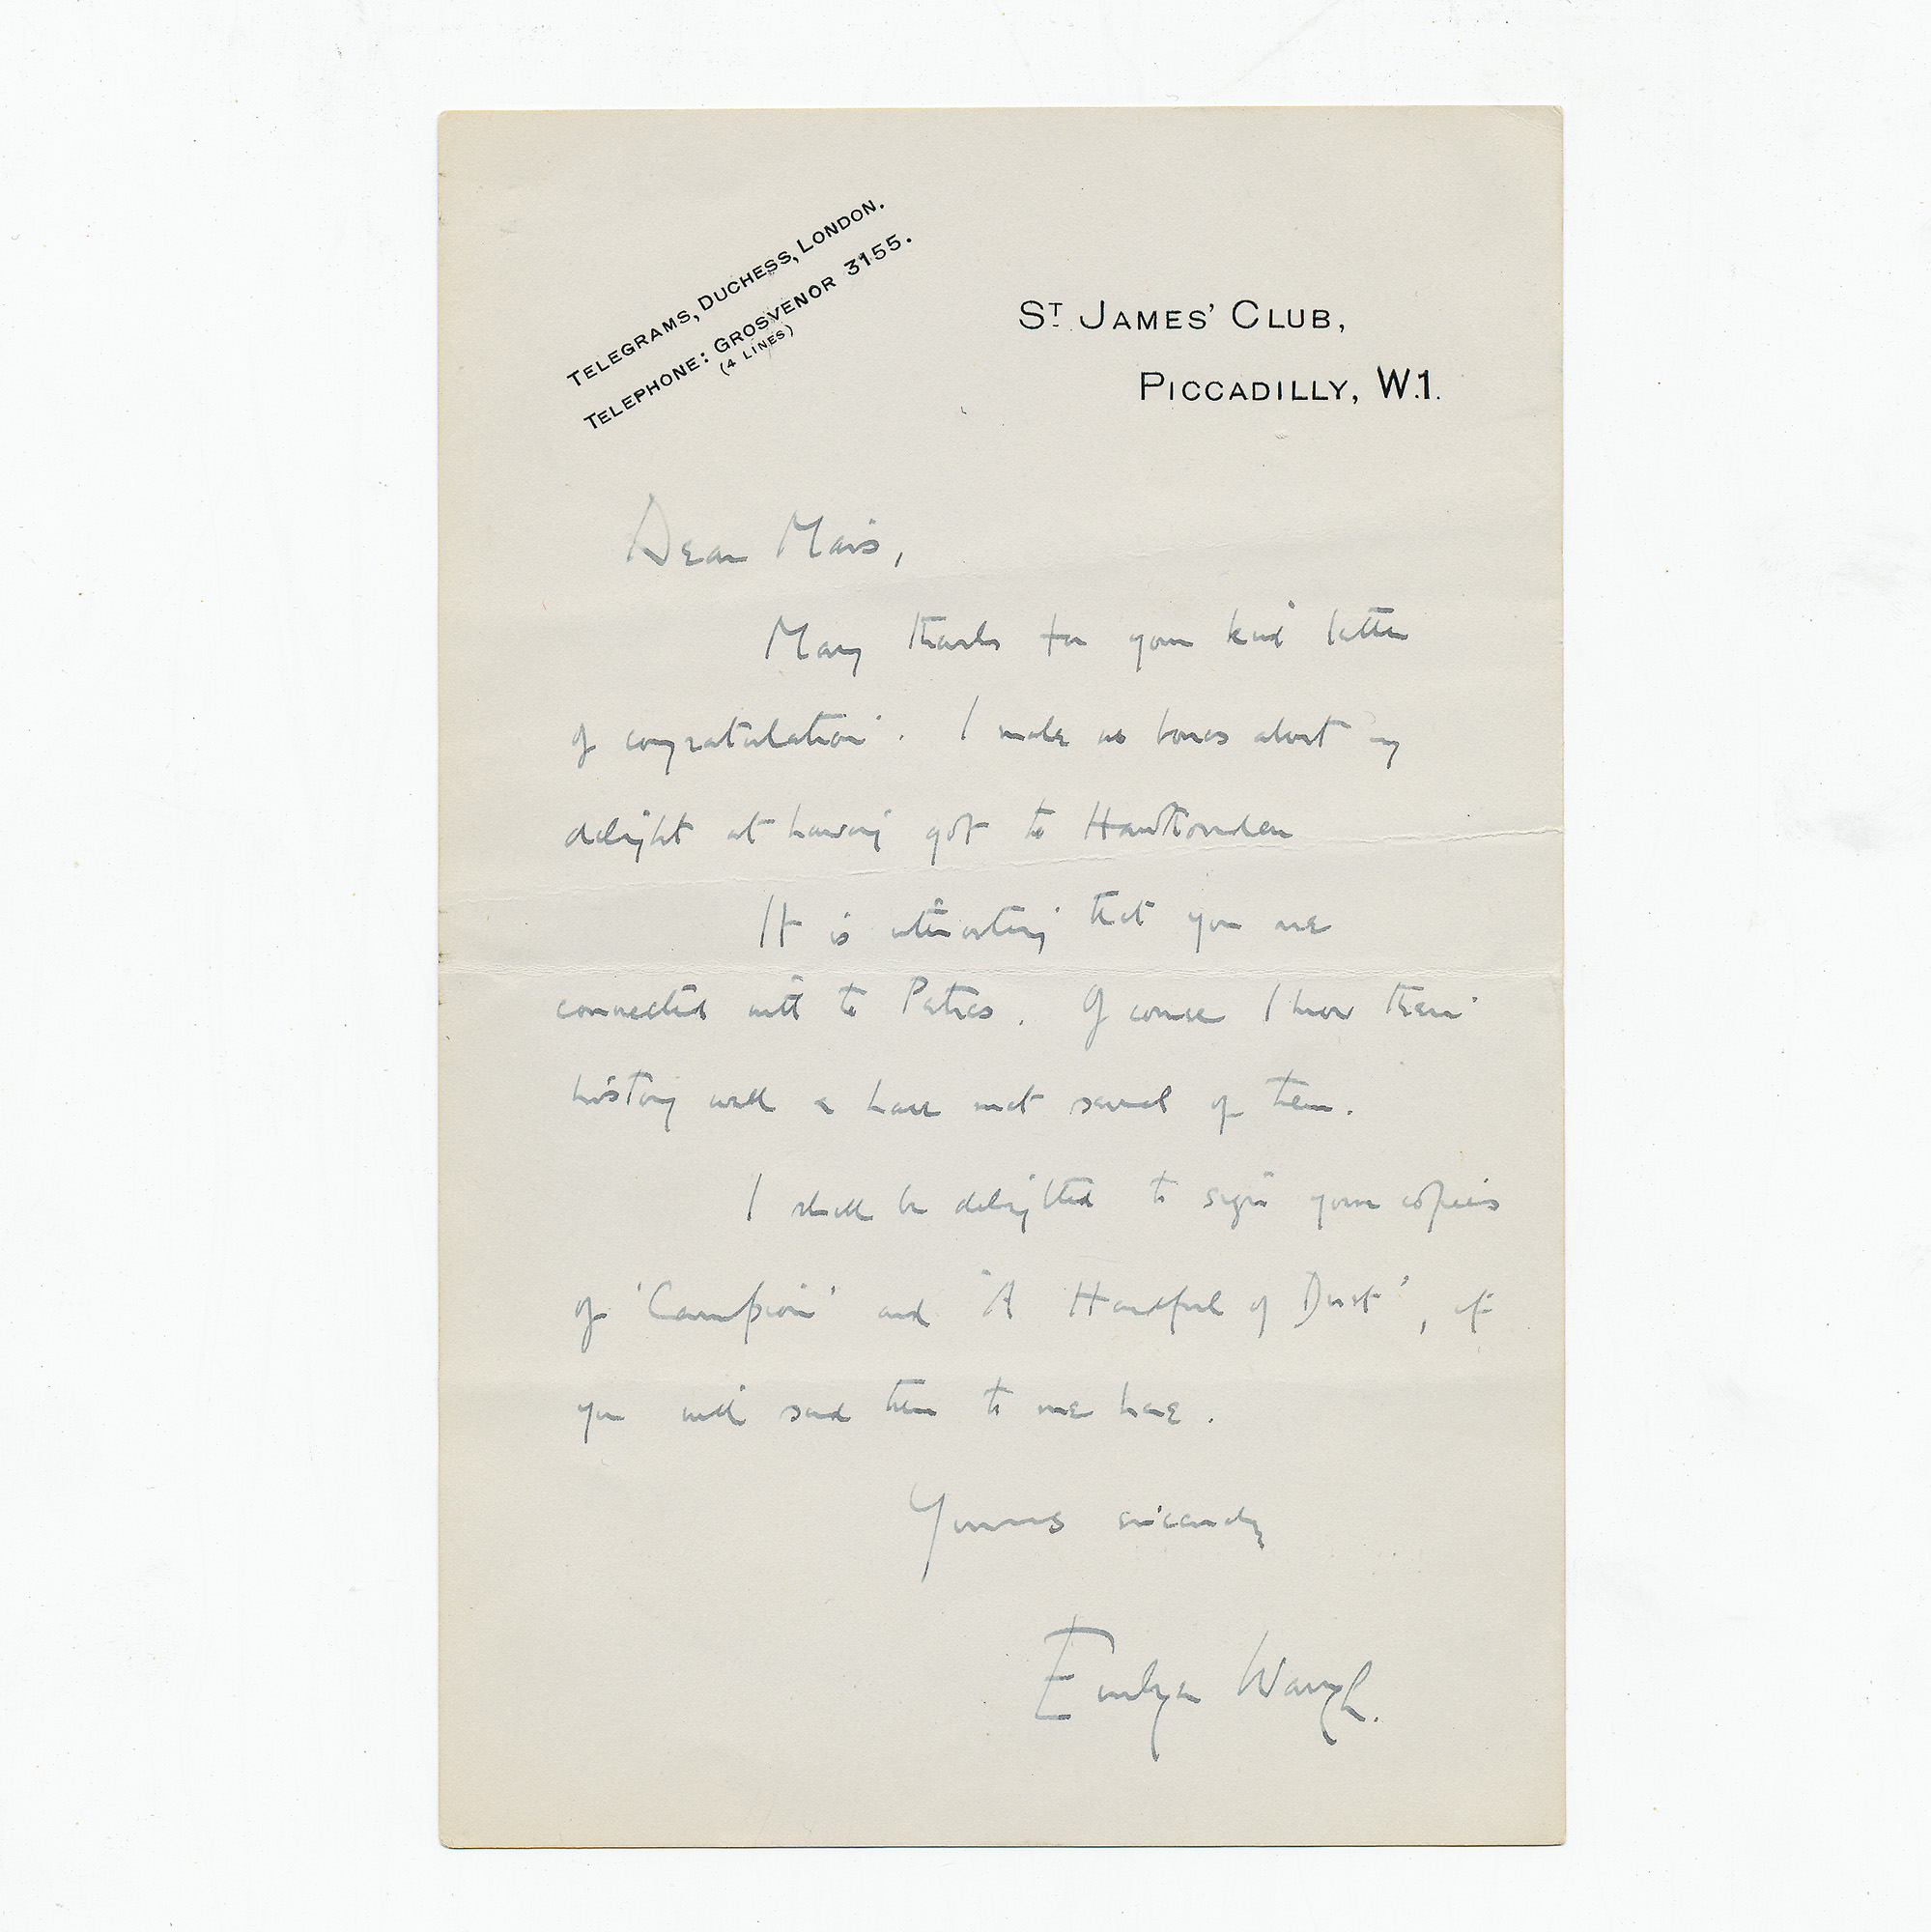 TELEGRAMS, DUCHESS, LONDON.
TELEPHONE: GROSVENOR 3155.
(4 LINES)
ST. JAMES' CLUB,
PICCADILLY, W.1.
Dear Mais,
Many thanks for your kind letter
of congratulation. I make no bones about my
delight at having got the Hawthornden
It is interesting that you are
connected with the Petres. Of course I know their
history well & have met several of them.
I shall be delighted to sign your copies
of 'Campion' and 'A Handful of Dust', if
you will send them to me here.
Yours sincerely
Evelyn Waugh.